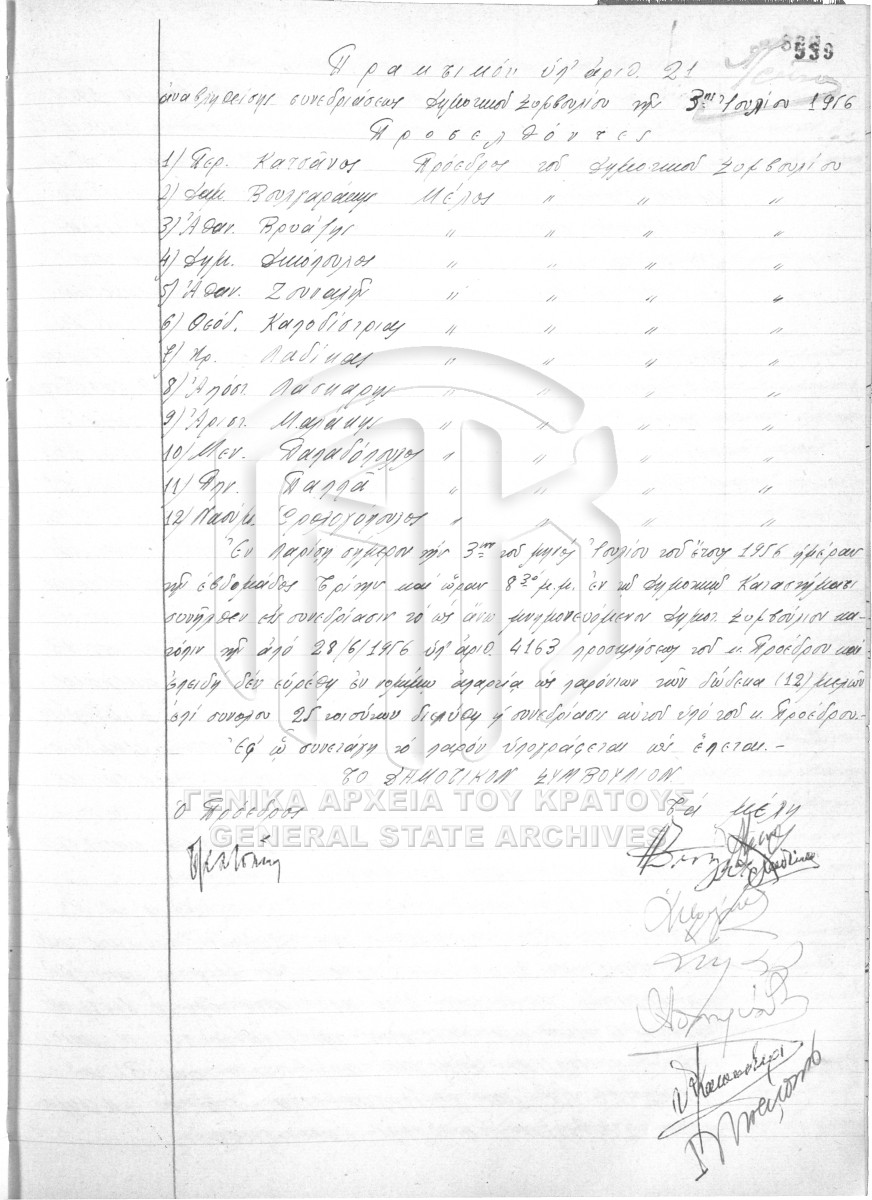 539
Πρακτικόν ὑπ' ἀριθ. 21
ἀναβληθείσης συνεδριάσεως Δημοτικοῦ Συμβουλίου τῆς 3ης Ἰουλίου 1956
Προσελθόντες
1) Περ. Κατσάνος Πρόεδρος τοῦ Δημοτικοῦ Συμβουλίου
2) Δαμ. Βουλγαράκης Μέλος " " "
3) Ἀθαν. Βρυάζης " " " "
4) Δημ. Δικόπουλος " " " "
5) Ἀθαν. Ζουπαλῆς " " " "
6) Θεόδ. Καποδίστριας " " " "
7) Χρ. Λαδίκας " " " "
8) Ἀπόστ. Λάσκαρης " " " "
9) Ἀριστ. Μαλάκης " " " "
10) Μεν. Παπαδόπουλος " " " "
11) Πην. Παλλᾶ " " " "
12) Ναούμ. " " " "
Ἐν Λαρίσῃ σήμερον τήν 3ην τοῦ μηνός Ἰουλίου τοῦ ἔτους 1956 ἡμέραν
τῆς ἑβδομάδος Τρίτην καί ὥραν 8 30 μ.μ. ἐν τῷ Δημοτικῷ Καταστήματι
συνῆλθεν εἰς συνεδρίασιν τό ὡς ἄνω μνημονευόμενον Δημοτ. Συμβούλιον κα-
τόπιν τῆς ἀπό 28/6/1956 ὑπ' ἀριθ. 4163 προσκλήσεως τοῦ κ. Προέδρου καί
ἐπειδή δέν εὑρέθη ἐν νομίμῳ ἀπαρτίᾳ ὡς παρόντων τῶν δώδεκα (12) μελῶν
ἐπί συνόλου 25 τοιούτων διελύθη ἡ συνεδρίασις αὐτοῦ ὑπό τοῦ κ. Προέδρου.-
Ἐφ' ᾧ συνετάγη τό παρόν ὑπογράφεται ὡς ἕπεται.-
ΤΟ ΔΗΜΟΤΙΚΟΝ ΣΥΜΒΟΥΛΙΟΝ
ΓΕΝΙΚΑ ΑΡΧΕΙΑ ΤΟΥ ΚΡΑΤΟΥΣ
Ὁ Πρόεδρος Τά μέλη
GENERAL STATE ARCHIVES